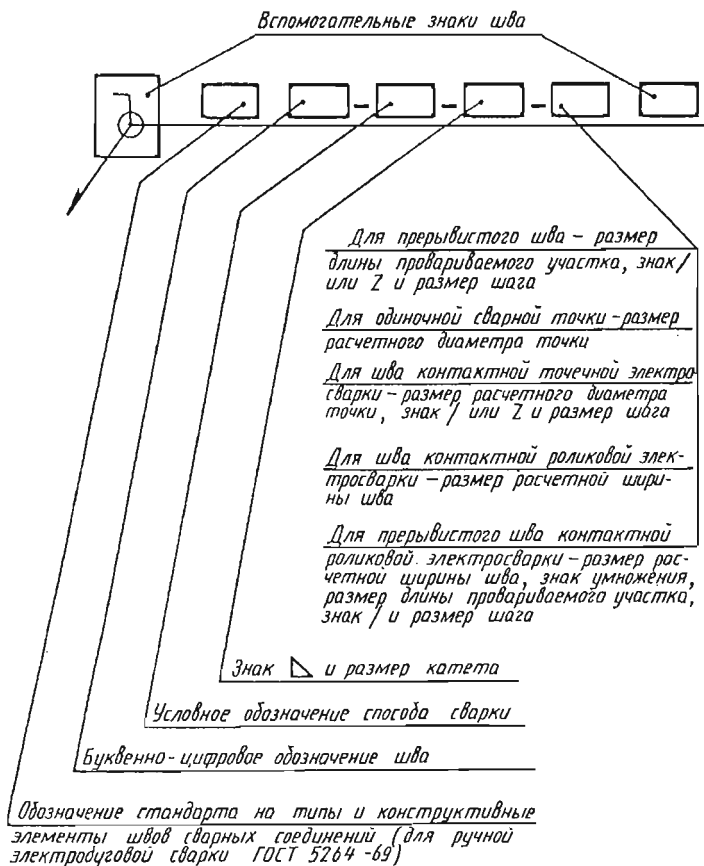 Вспомогательные знаки шва
Для прерывистого шва – размер
длины провариваемого участка, знак /
или Z и размер шага
Для одиночной сварной точки – размер
расчетного диаметра точки
Для шва контактной точечной электро
сварки – размер расчетного диаметра
точки, знак / или Z и размер шага
Для шва контактной роликовой элек-
тросварки – размер расчетной шири-
ны шва
Для прерывистого шва контактной
роликовой электросварки – размер рас-
четной ширины шва, знак умножения,
размер длины провариваемого участка,
знак / и размер шага
Знак ◺ и размер катета
Условное обозначение способа сварки
Буквенно-цифровое обозначение шва
Обозначение стандарта на типы и конструктивные
элементы швов сварных соединений (для ручной
электродуговой сварки ГОСТ 5264-69)